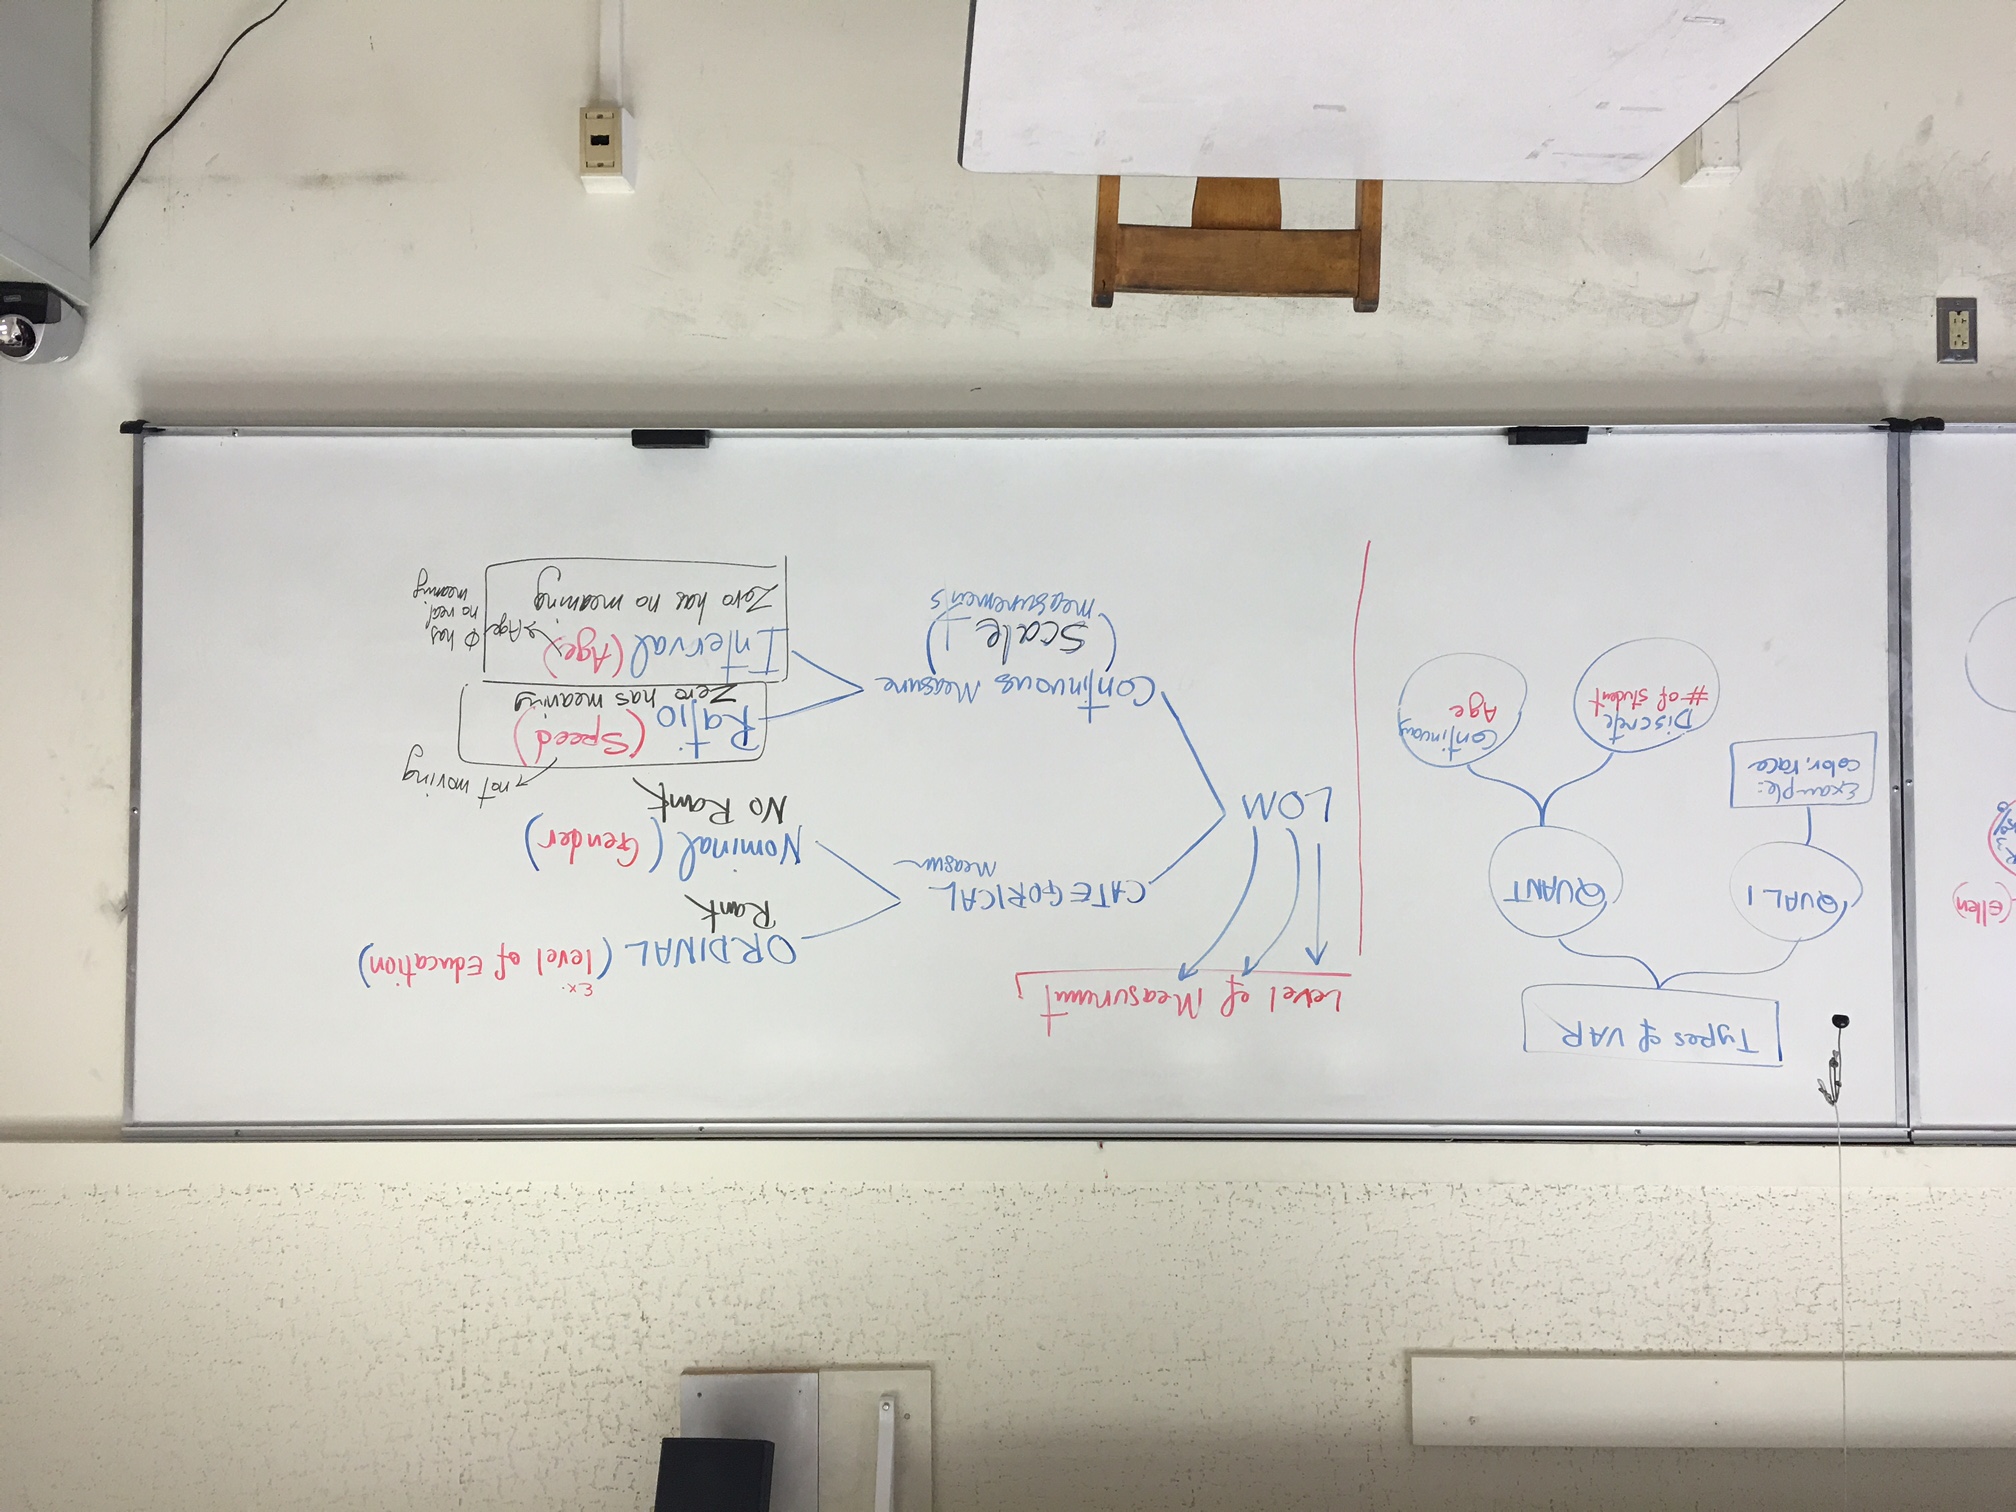 (Ellen)
Types of VAR
QUALI
QUANT
Example:
color, race
Discrete
# of student
Continuous
Age
Level of Measurement
LOM
CATEGORICAL
Measure
ORDINAL (Ex. level of Education)
Rank
Nominal (Gender)
No Rank
Continuous Measure
(Scale)
measurements
Ratio (Speed)
not moving
Zero has meaning
Interval (Age)
Age Φ has
no real
meaning
Zero has no meaning